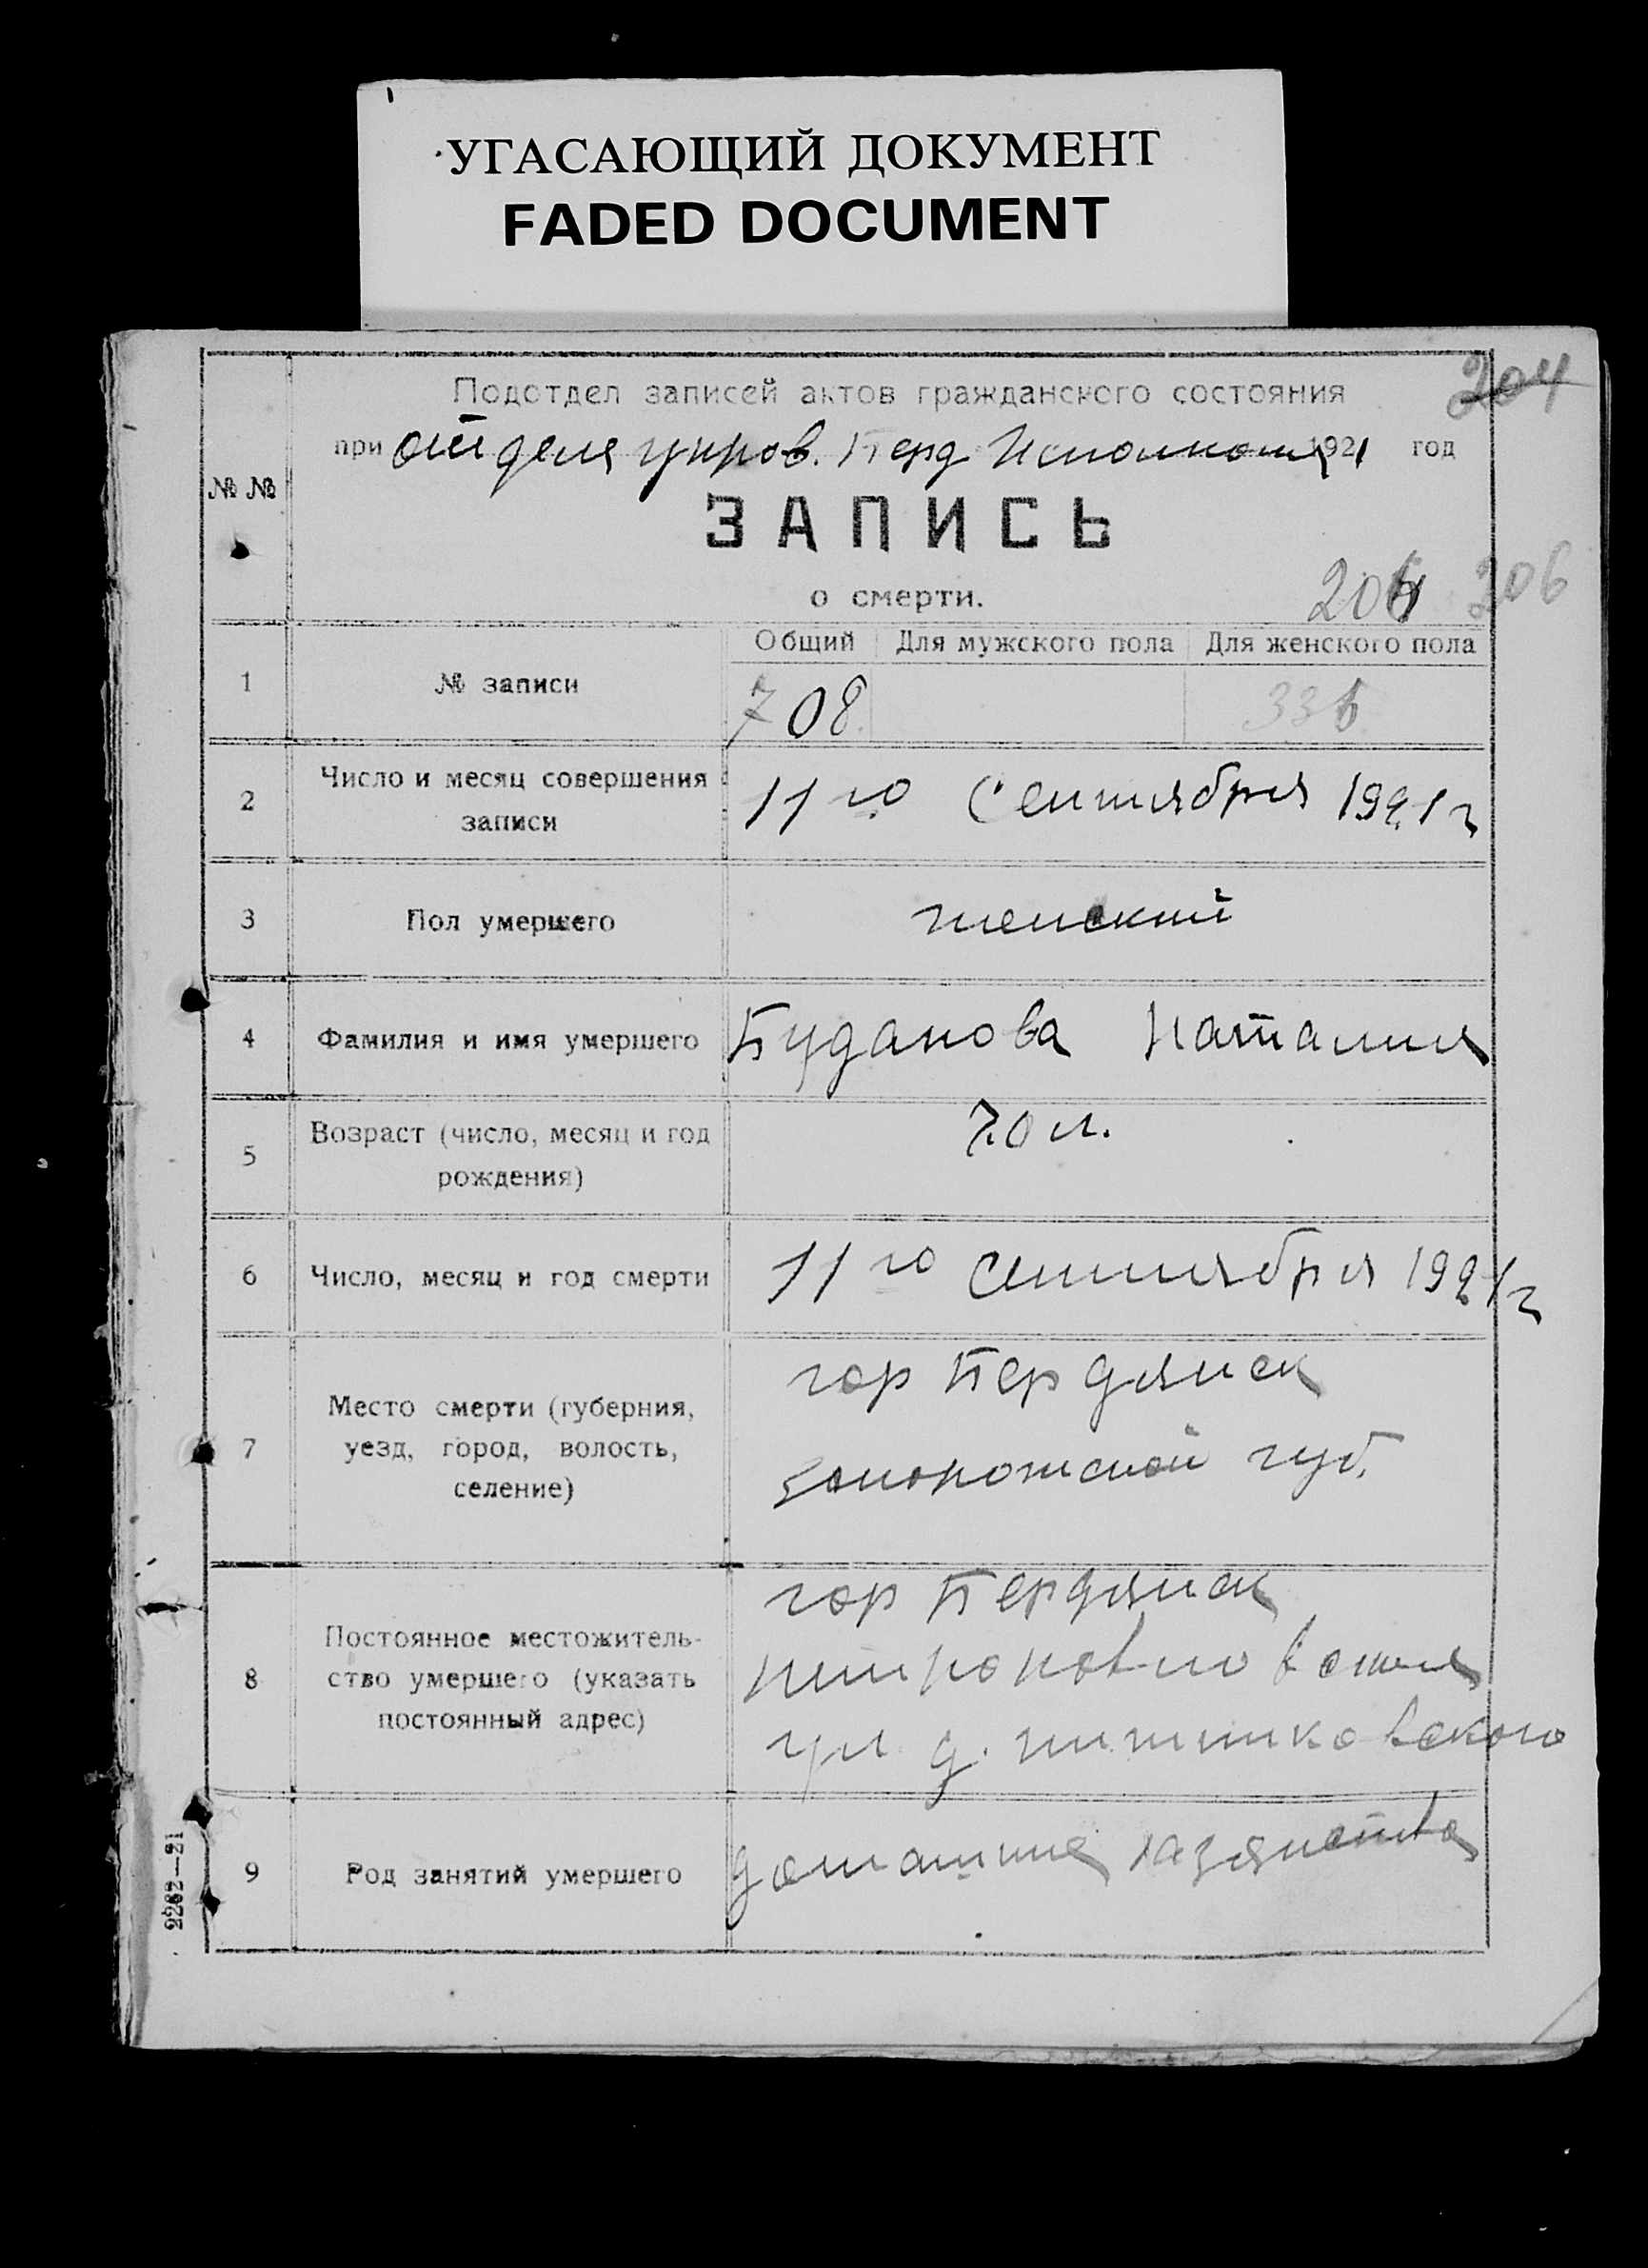 УГАСАЮЩИЙ ДОКУМЕНТ
FADED DOCUMENT
204
Подотдел записей актов гражданского состояния
при отделе управ. Берд Исполкома 1921 год
№ №
ЗАПИСЬ
о смерти.
206
Общий Для мужского пола Для женского пола
1 № записи 708
2 Число и месяц совершения записи
11го Сентября 1921 г
3 Пол умершего женский
4 Фамилия и имя умершего Буданова Наталия
5 Возраст (число, месяц и год рождения)
70 л.
6 Число, месяц и год смерти 11го Сентября 1921 г
7 Место смерти (губерния, уезд, город, волость, селение)
гор Бердянск
Запорожской губ.
8 Постоянное местожитель-
ство умершего (указать
постоянный адрес)
гор Бердянск
ул д.
9 Род занятий умершего домашние хазяйства
2262—21